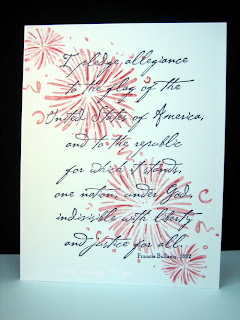 I pledge allegiance
to the flag of the
United States of America,
and to the republic
for which it stands,
one nation, under God,
indivisible with liberty
and justice for all.
Francis Bellamy, 1892